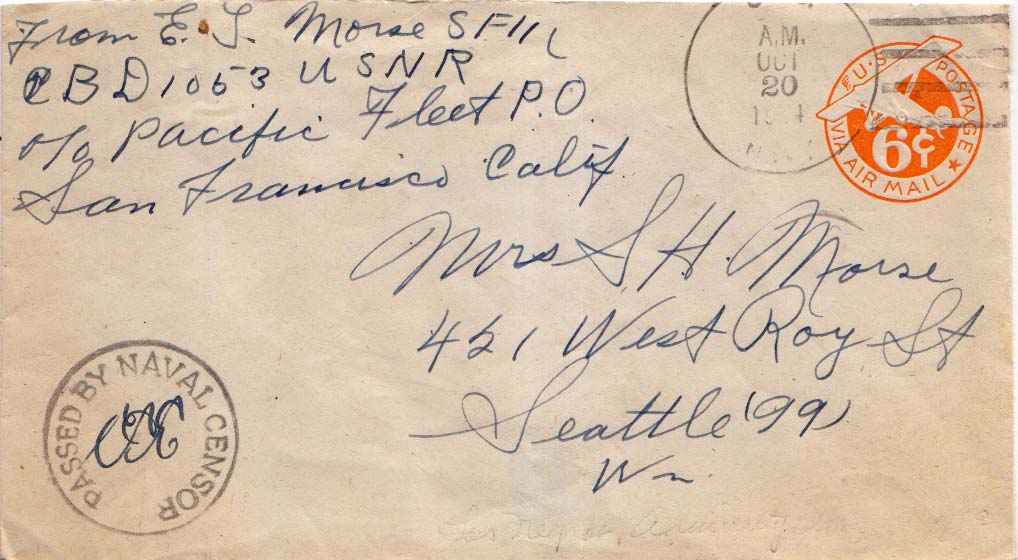 From E. J. Morse SF11L
CBD 1053 USNR
c/o Pacific Fleet P.O.
San Francisco Calif
A.M.
OCT
20
U.S. POSTAGE
6¢
VIA AIR MAIL
Mrs S H. Morse
421 West Roy St
Seattle (99)
Wn.
PASSED BY NAVAL CENSOR